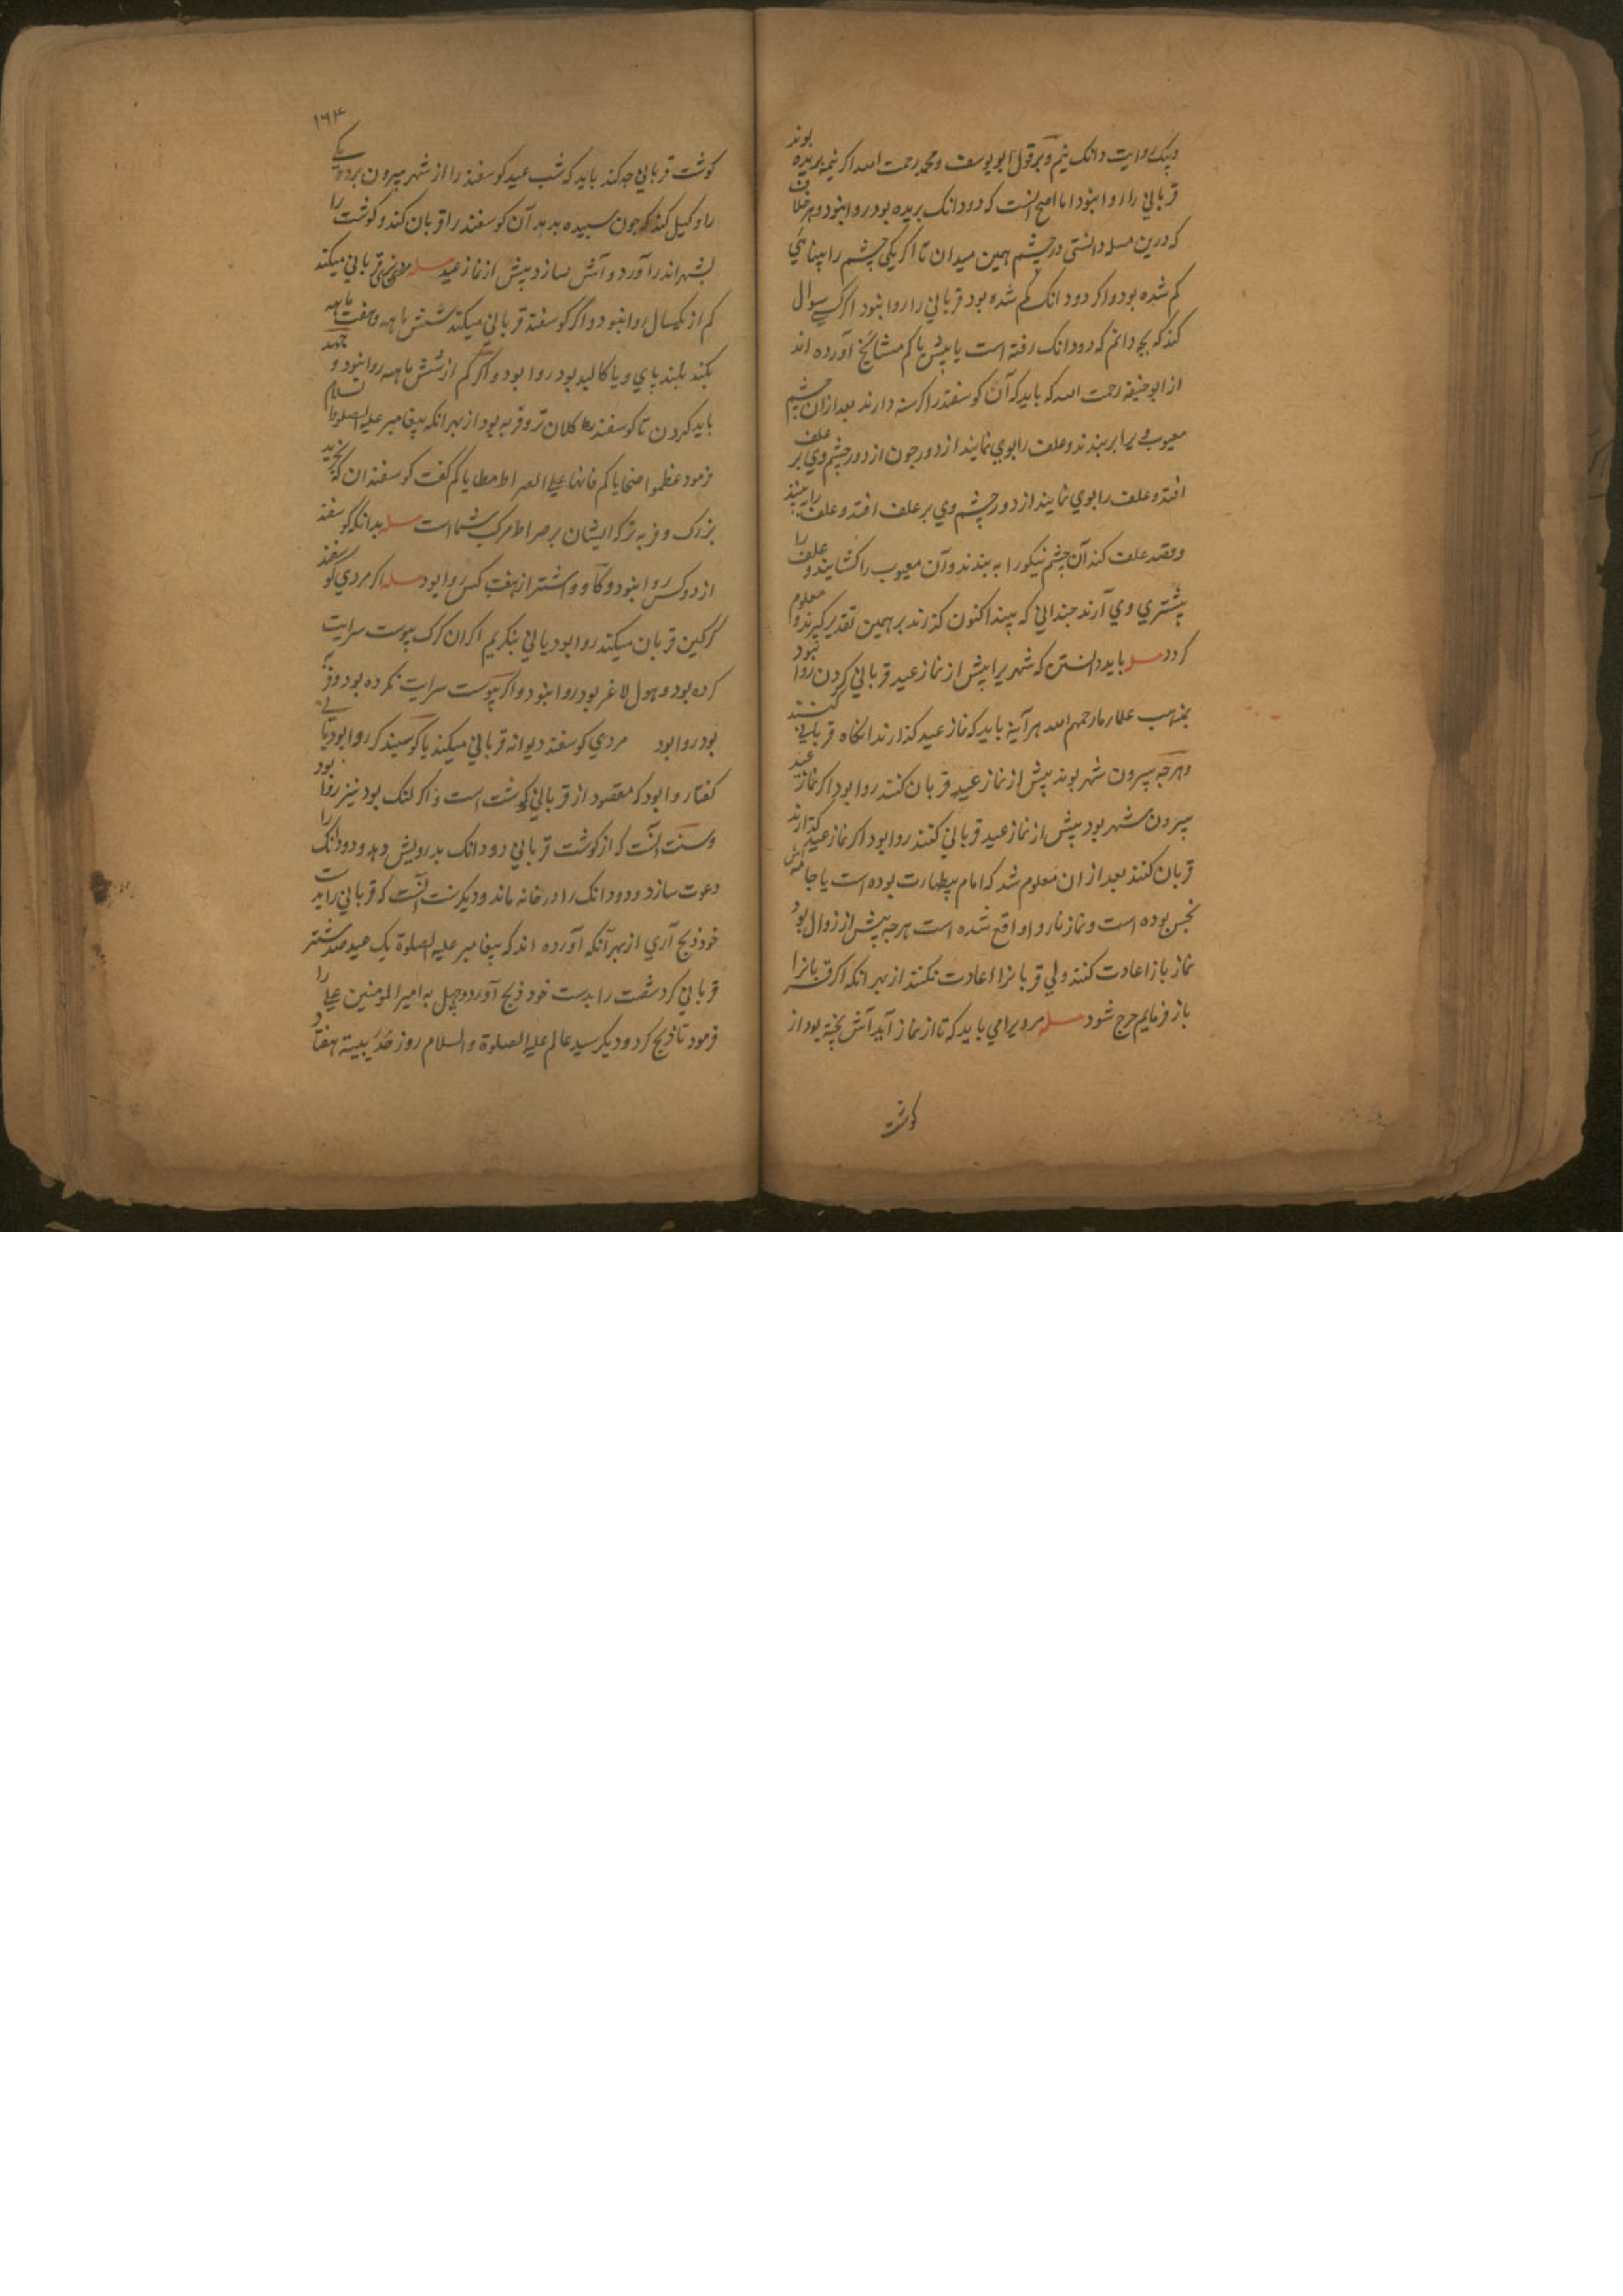 و بیک روایت دانک نیم و بر قول ابو یوسف و محمد رحمت الله اکر نیمه بریده بوند
قربانی را روا نبود اما اصح انست که دو دانک بریده بود روا نبود و هر خلاف
که درین مسله دانستی در چشم همین میدان تا اکر یکی چشم را بینائی
کم شده بود و اکر دو دانک کم شده بود قربانی را روا نبود اکر کسے سوال
کند که بچه دانم که دو دانک رفته است یا بیش یا کم مشائخ آورده اند
از ابو حنیفه رحمت الله که باید که آن کوسفند را کرسنه دارند بعد ازان چشم
معیوب ویرا بر بندند و علف را بوی نمایند از دور جون از دور چشم وی بر علف
افتد و علف را بوی نمایند از دور چشم وی بر علف افتد و علف را به بیند
و قصد علف کند آن چشم نیکو را به بندند و آن معیوب را کشایند و علف را
پیشتری وی آرند جندانی که بیند اکنون کذرند بر همین تقدیر کیرند و معلوم
کردد مسله باید دانستن که شهریرا پیش از نماز عید قربانی کردن روا نبود
بمذهب علماء ما رحمهم الله هر آینه باید که نماز عید کذارند انکاه قربانی کنند
و هرجه بیرون شهر بوند پیش از نماز عید قربان کنند روا بود اکر نماز عید
بیرون شهر بود پیش از نماز عید قربانی کنند روا بود اکر نماز عید کذارند
قربان کنند بعد ازان معلوم شد که امام بیطهارت بوده است یا جامه اش
نجس بوده است و نماز ناروا واقع شده است هرجه پیش از زوال بود
نماز باز اعادت کنند ولی قربانرا اعادت نکنند از بهر انکه اکر قربانرا
باز فرمایم حرج شود مسله مرویرا می باید که تا از نماز آید آش پخته بود از
کوشت
۱۶۳
کوشت قربانی جه کند باید که شب عید کوسفند را از شهر بیرون برد و یکے
را وکیل کند که جون سبیده بدهد آن کوسفند را قربان کند و کوشت را
بشهر اندر آورد و آش بسازد پیش از نماز عید مسله قربانی میکند
کم از یکسال روا نبود و اکر کوسفند قربانی میکند شش ماهه و هفت ماهه
بکند بلند پای و یا کالبد بود روا بود و اکر کم از شش ماهه روا نبود و جهد
باید کردن تا کوسفند کلان تر و فربه بود از بهر انکه پیغامبر علیه الصلوة السلام
فرمود عظموا ضحایاکم فانها علی الصراط مطایاکم کفت کوسفندان که بخرید
بزرک و فربه تر که ایشان بر صراط مرکب شما است مسله بدانکه کوسفند
از دو کس روا نبود و کاو و اشتر از هفت کس روا بود مسله اکر مردی کوسفند
کرکین قربان میکند روا بود یا نی بنکریم اکر ان کرک بپوست سرایت
کرده بود و هول لاغر بود روا نبود و اکر بپوست سرایت نکرده بود و فربه
بود روا بود مردی کوسفند دیوانه قربانی میکند یا کوسبند کر روا بود یا نے
کفتار روا بود که مقصود از قربانی کوشت است و اکر لنک بود نیز روا بود
و سنت انست که از کوشت قربانی دو دانک بدرویش دهد و دو دانک را
دعوت سازد و دو دانک را در خانه ماند و دیکر سنت انست که قربانی را بدست
خود ذبح آری از بهر آنکه آورده اند که پیغامبر علیه الصلوة یک عید صد شتر
قربانی کرد شصت را بدست خود ذبح آورد و چهل به امیر المومنین علی را
فرمود تا ذبح کرد و دیکر سید عالم علیه الصلوة والسلام روز حُدَیبیة هفتاد